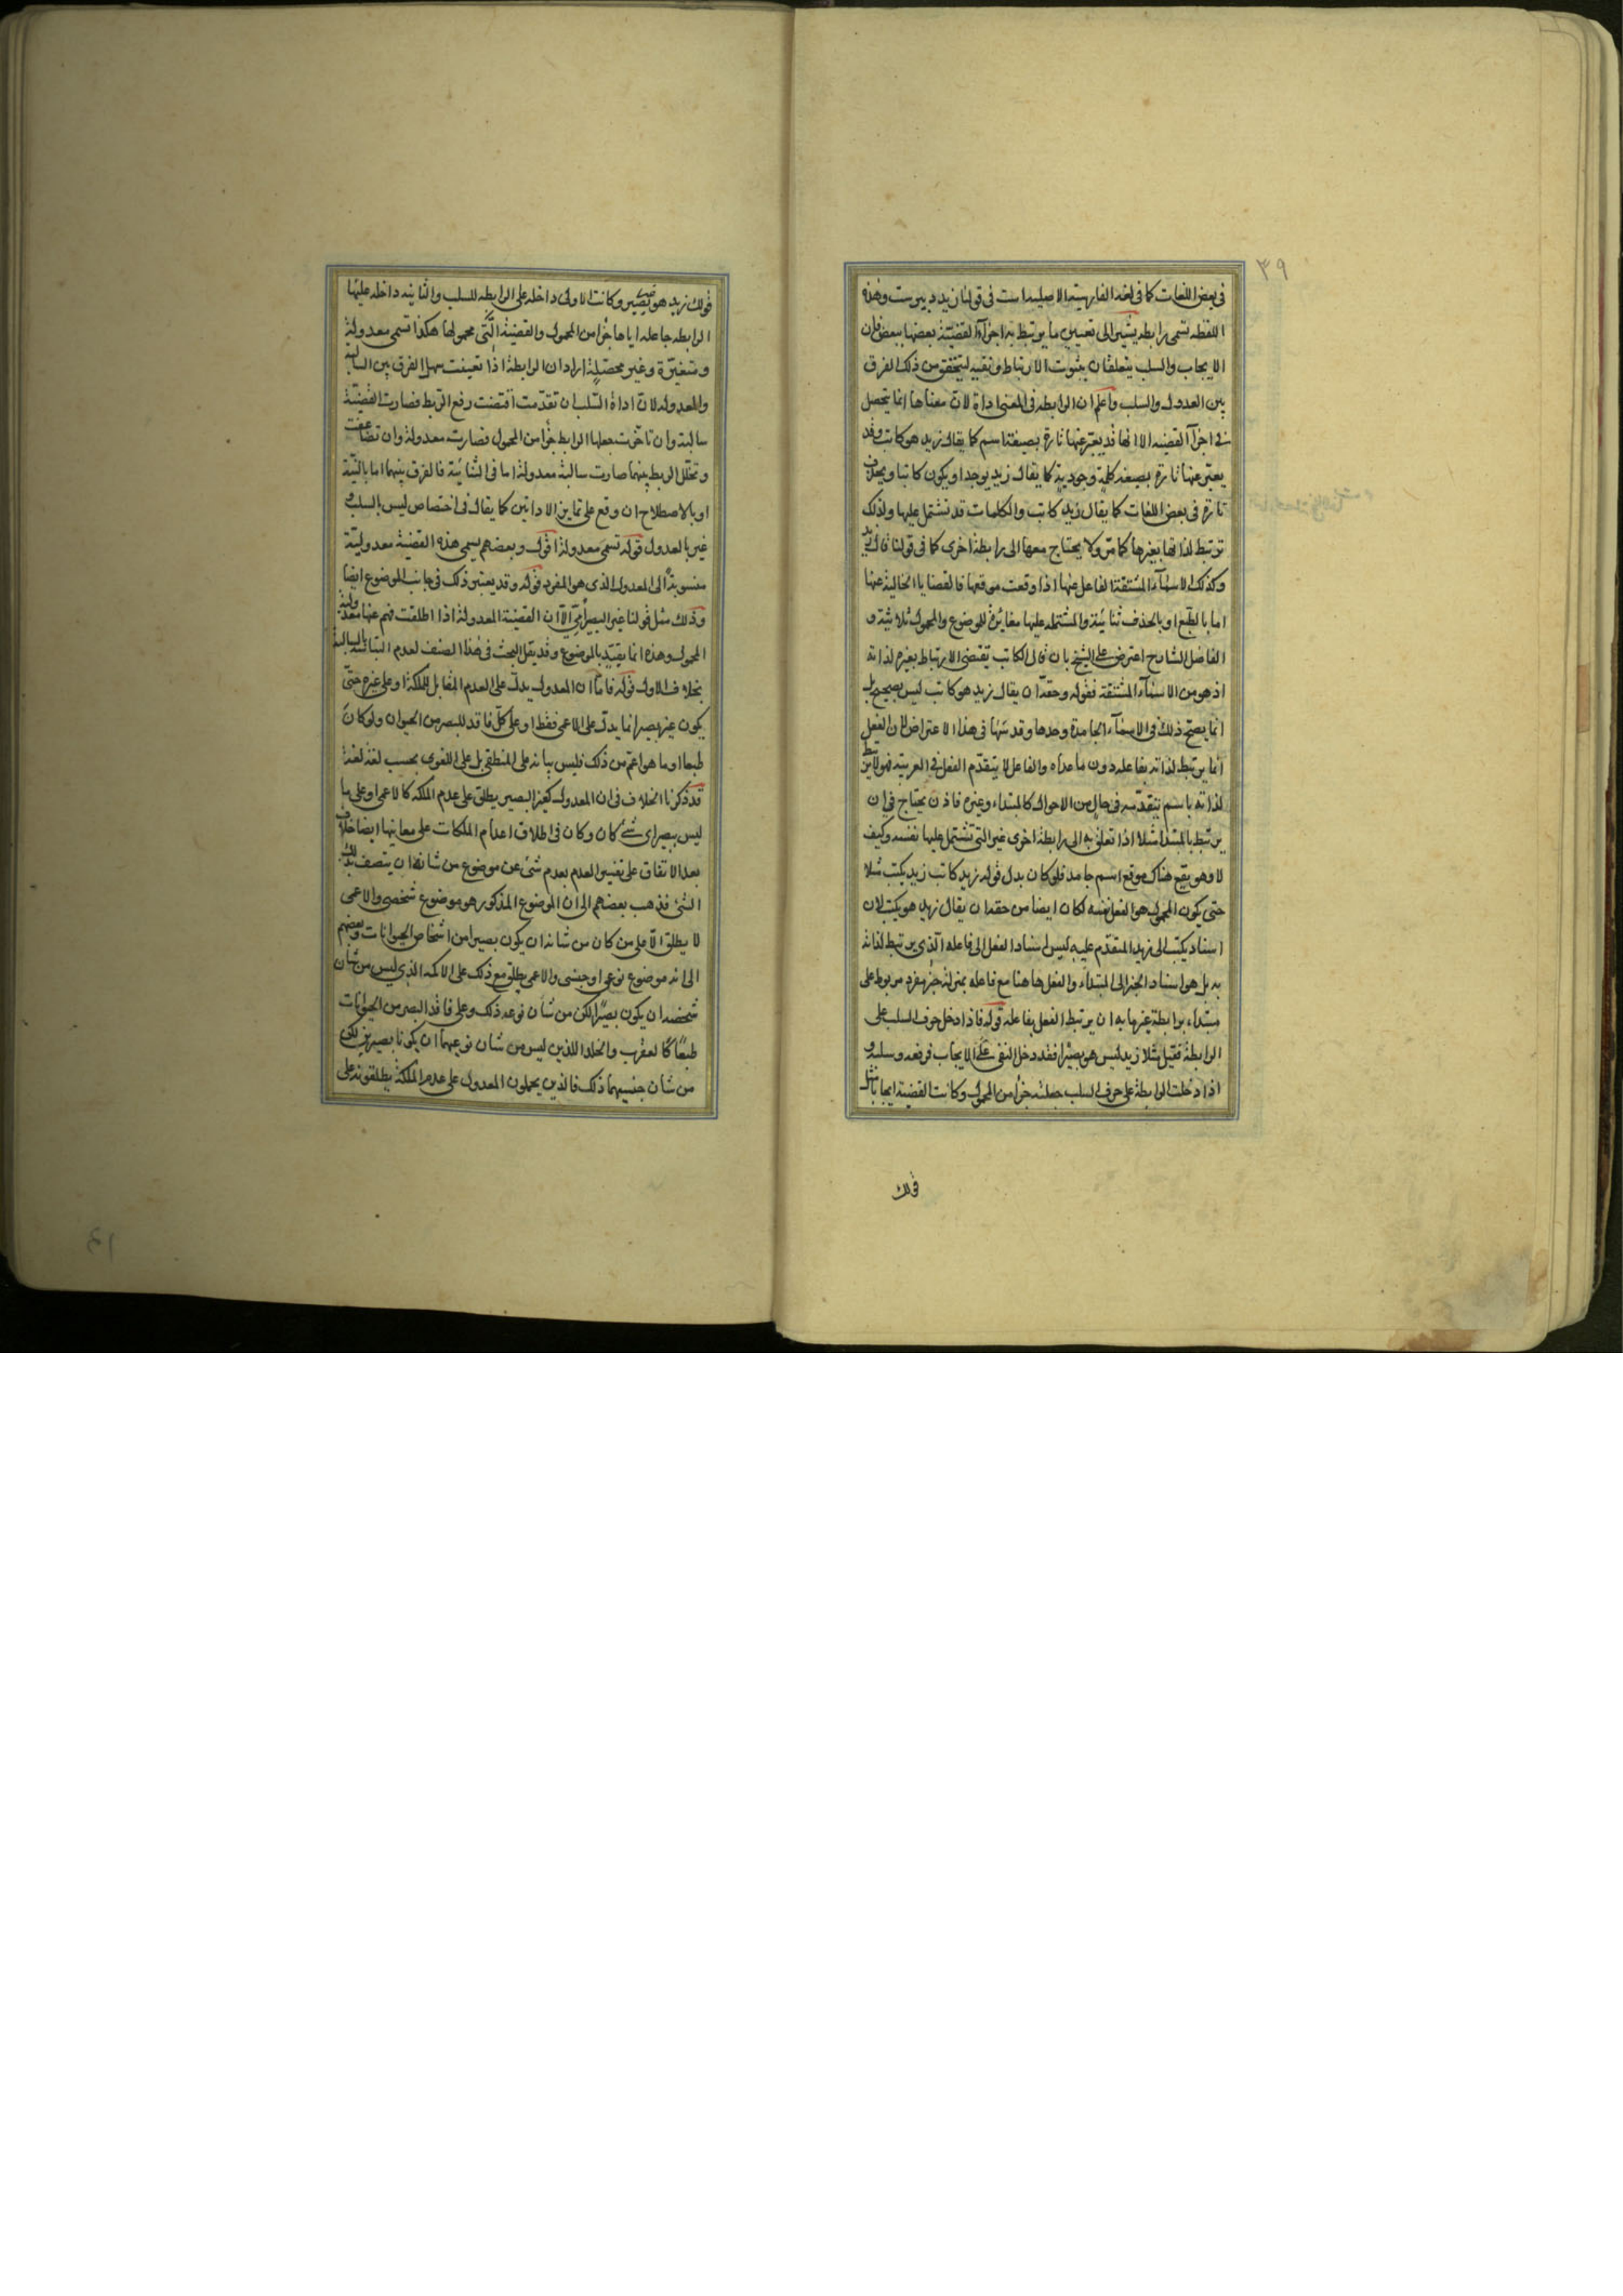 ٣٩
فى بعض اللغات كما فى لغة الفارسية الاصلية است فى قولنا زيد دبيرست وهذه
اللفظه تسمى رابطه يشير الى تعيين ما يرتبط به اجزآء القضيّة بعضها ببعض فان
الايجاب والسلب يتعلقان بثبوت الارتباط ونفيه ليتحقق من ذلك الفرق
بين العدول والسلب واعلم ان الرابطه فى المعنى اداة لان معناها انما يتحصل
فى اجزآ القضيه الا انها قد يعبّر عنها تارة بصيغة اسم كما يقال زيد هو كاتب وقد
يعبّر عنها تارة بصيغة كلمة وجودية كما يقال زيد يوجد او يكون كاتبا ويحذف
تارة فى بعض اللغات كما يقال زيد كاتب والكلمات قد تشتمل عليها ولذلك
ترتبط لذاتها بغيرها كما مرّ ولا يحتاج معها الى رابطة اخرى كما فى قولنا قال زيد
وكذلك الاسمآء المشتقة الفاعل عنها اذا وقعت موقعها فالقضايا الخالية عنها
اما بالطبع او بالحذف ثنائية والمشتمله عليها مغايرة للموضوع والمحمول ثلاثية و
الفاضل الشارح اعترض على الشيخ بان قال الكاتب يقتضى الارتباط بغيره لذاته
اذ هو من الاسمآء المشتقة فقوله وحقه ان يقال زيد هو كاتب ليس بصحيح بل
انما يصح ذلك فى الاسمآء الجامدة وحدها وقد سها فى هذا الاعتراض لان الفعل
انما يرتبط لذاته بفاعله دون ما عداه والفاعل لا يتقدم الفعل فى العربية فهو لا يرتبط
لذاته باسم يتقدمه فى حال من الاحوال كالمبتداء وغيره فاذن يحتاج فى ان
يرتبط بالمبتدا مثلا اذا تعلق به الى رابطة اخرى غير التى تشتمل عليها نفسه وكيف
لا وهو يقع هناك موقع اسم جامد فلو كان بدل قوله زيد كاتب زيد يكتب مثلا
حتى يكون المحمول هو الفعل نفسه لكان ايضا من حقه ان يقال زيد هو يكتب لان
اسناد يكتب الى زيد المتقدم عليه ليس اسناد الفعل الى فاعله الذى يرتبط لذاته
به بل هو اسناد الخبر الى المبتدآء والفعل هاهنا مع فاعله بمنزلة خبر مفرد مربوط على
مبتداء برابطة غيرها به ان يرتبط الفعل بفاعله قوله فاذا دخل حرف السلب على
الرابطة فقيل مثلا زيد ليس هو بصيرا فقد دخل النفى على الايجاب فرفعه وسلبه و
اذا دخلت الرابطة على حرف السلب جعلته جزأ من المحمول وكانت القضية ايجابا مثل
قولك
قولك زيد هو غير بصير وكانت الاولى داخله على الرابطه للسلب والثانيه داخله عليها
الرابطه جاعله اياها جزأ من المحمول والقضية التّى محمولها هكذا تسمى معدولة
ومتغيّرة وغير محصّلة اراد ان الرابطة اذا تعينت سهل الفرق بين السالبه
والمعدوله لانّ اداة السّلب ان تقدّمت اقتضت رفع الربط فصارت القضيّة
سالبة وان تاخّرت جعلها الرابط جزأ من المحمول فصارت معدولة وان تضاعفت
وتخلّل الربط بينهما صارت سالبة معدولة اما فى الثنائيّة فالفرق بينهما اما بالنيّة
او بالاصطلاح ان وقع على تمايز الاداتين كما يقال فى اختصاص ليس بالسلب و
غير بالعدول قوله تسمى معدولة اقول وبعضهم يسمى هذه القضية معدولية
منسوبة الى المعدول الذى هو المفرد قوله وقد يعتبر ذلك فى جانب الموضوع ايضا
وذلك مثل قولنا غير البصير امّى الّا ان القضيّة المعدولة اذا اطلقت فهم عنها معدولية
المحمول وهذه انما يقيّد بالموضوع وقد يقل البحث فى هذا الصنف لعدم التباسه بالسالبة
بخلاف الاول قوله فاما ان المعدول يدل على العدم المقابل للملكة او على غيره حتّى
يكون غير بصير انما يدل على الاعمى فقط او على كلّ فاقد للبصر من الحيوان ولو كان
طبعا او ما هو اعم من ذلك فليس بيانه على المنطقى بل على اللغوى بحسب لغة لغة
قد ذكرنا الخلاف فى ان المعدول كغير البصير يطلق على عدم الملكه كالاعمى او على ما
ليس ببصير اى شئ كان وكان فى اطلاق اعدام الملكات على معانيها ايضا خلاف
بعد الاتفاق على تفسير العدم بعدم شئ عن موضوع من شانه ان يتصف بذلك
الشئ فذهب بعضهم الى ان الموضوع المذكور هو موضوع شخصى والاعمى
لا يطلق الّا على من كان من شانه ان يكون بصيرا من اشخاص الحيوانات وبعضهم
الى انه موضوع نوعى او جنسى والاعمى يطلق مع ذلك على الاكمه الذى ليس من شان
شخصه ان يكون بصيرًا لكن من شان نوعه ذلك وعلى فاقد البصر من الحيوانات
طبعًا كالعقرب والخلد اللذين ليس من شان نوعيهما ان يكونا بصيرين لكن
من شان جنسيهما ذلك فالذين يحملون المعدول على عدم الملكة يطلقونه على